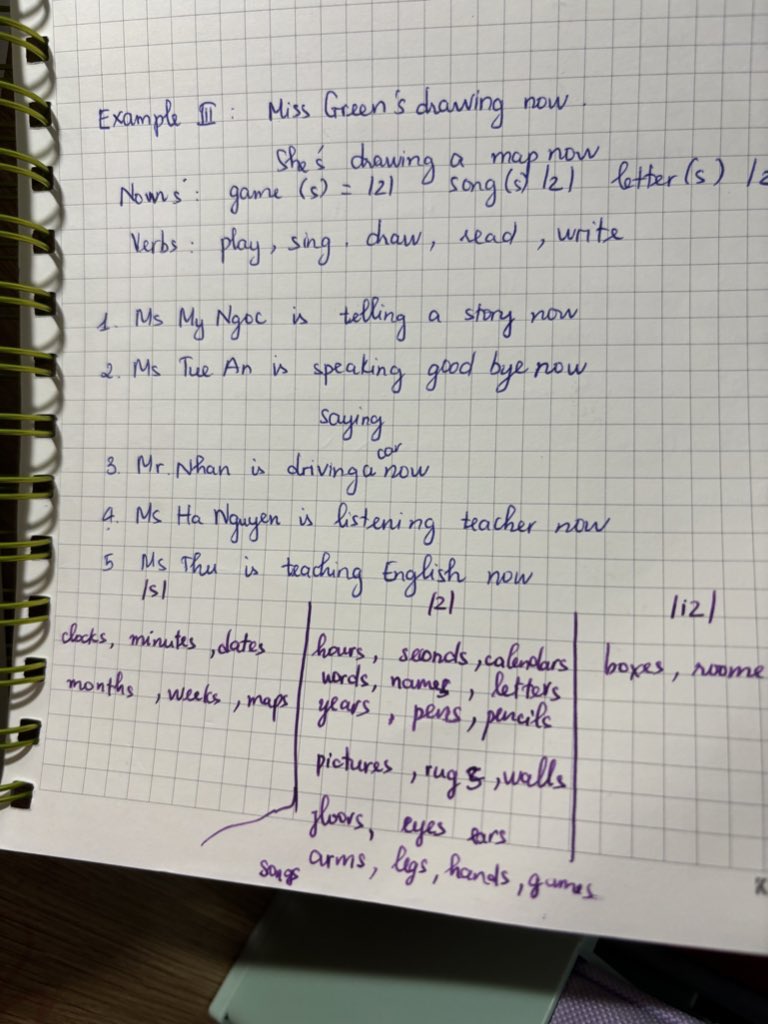 Example III : Miss Green's drawing now .
She's drawing a map now
Nouns : game (s) = /z/ song(s) /z/ letter(s) /z
Verbs : play, sing . draw, read , write
1. Ms My Ngoc is telling a story now
2. Ms Tue An is speaking good bye now
saying
3. Mr. Nhan is driving a car now
4. Ms Ha Nguyen is listening teacher now
5 Ms Thu is teaching English now
/s/ /z/ /iz/
clocks, minutes , dates
months , weeks , maps
hours, seconds , calendars
words, names , letters
years , pens , pencils
pictures , rugs , walls
floors, eyes ears
arms, legs, hands, games
songs
boxes ,